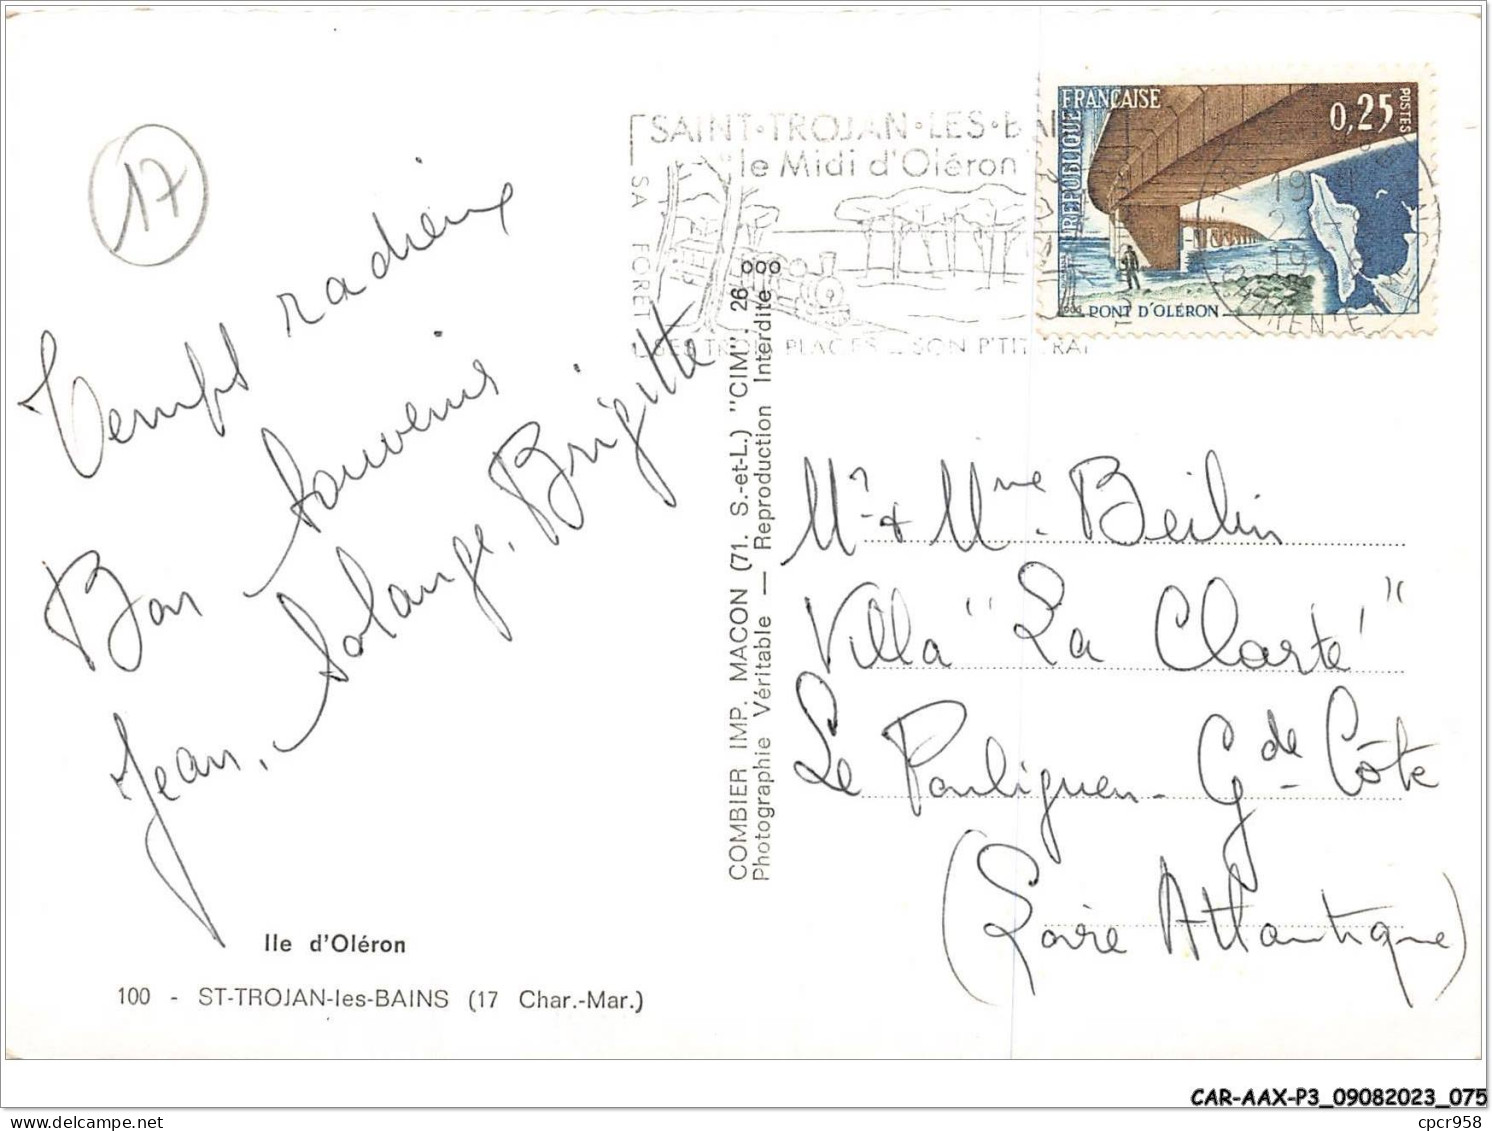 17
Temps radieux
Bon souvenir
Jean, Solange, Brigitte
Ile d'Oléron
100 - ST-TROJAN-les-BAINS (17 Char.-Mar.)
COMBIER IMP. MACON (71. S.-et-L.) "CIM". 26 ooo
Photographie Véritable — Reproduction Interdite oo
SAINT·TROJAN·LES·B
le Midi d'Oléron
SA FORET
SES PLAGES SON P'TIT TRAI
RÉPUBLIQUE FRANÇAISE
0,25
POSTES
PONT D'OLÉRON
19 H
CHARENTE
Mr & Mme Beilin
Villa "La Clarté"
Le Pouliguen - Gde Côte
(Loire Atlantique)
CAR-AAX-P3_09082023_075
cpcr958